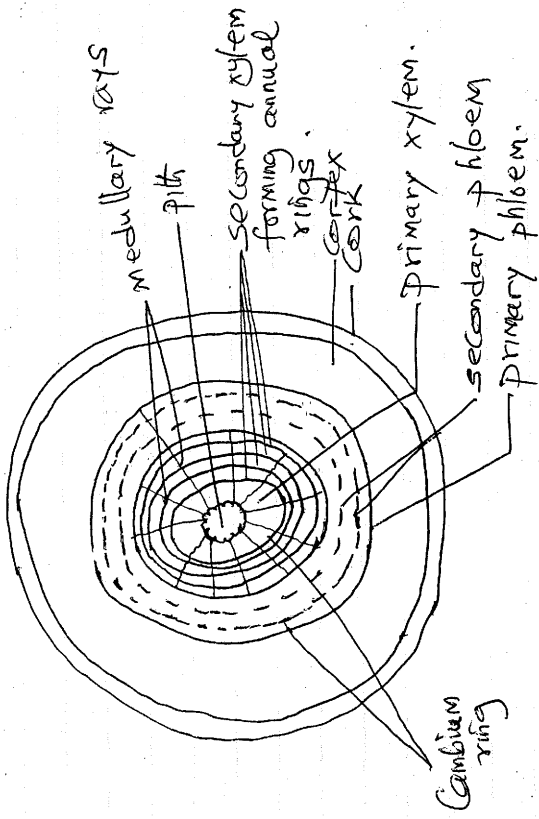 medullary rays
pith
secondary xylem
forming annual
rings.
cortex
cork
primary xylem.
secondary phloem
primary phloem.
Cambium
ring